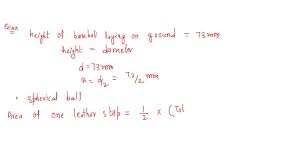 Given height of baseball laying on ground = 73mm
height = diameter
d = 73mm
r = d/2 = 73/2 mm
• spherical ball
Area of one leather strip = 1/2 × (Tot